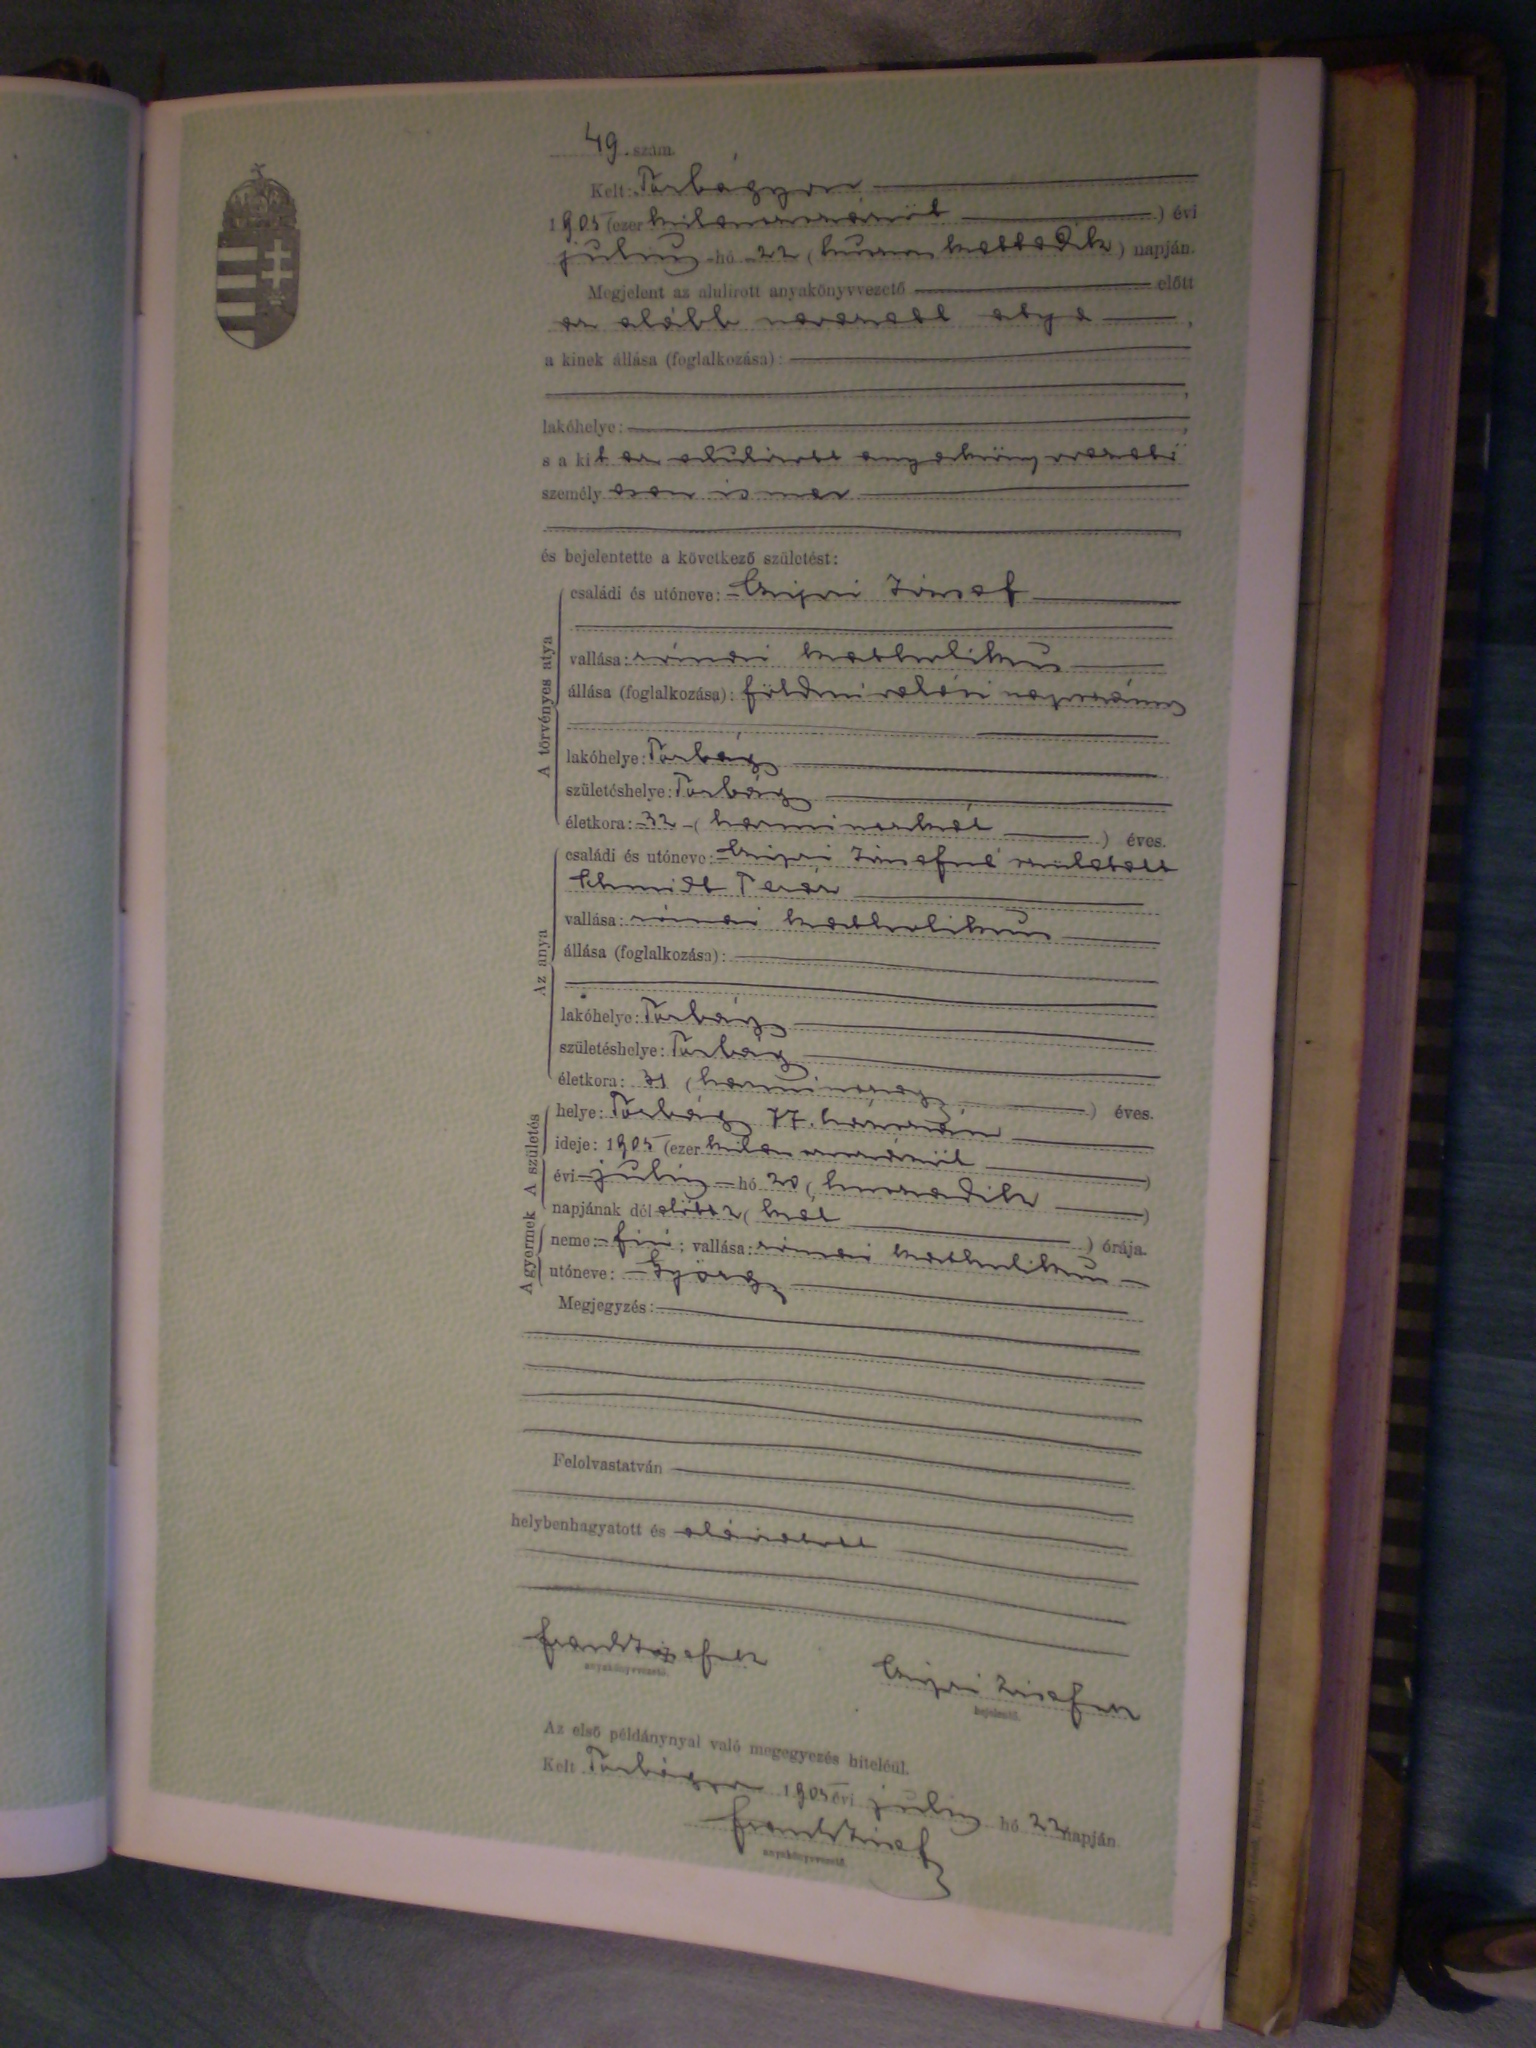 49. szám.
Kelt: Torbágyon
1905 (ezer kilencszázöt) évi
julius hó 22 (huszonkettedik) napján.
Megjelent az alulirott anyakönyvvezető előtt
az alább nevezett atya,
a kinek állása (foglalkozása):
lakóhelye:
s a kit az alulirott anyakönyvvezető
személyesen ismer
és bejelentette a következő születést:
A törvényes atya
családi és utóneve: József
vallása: római katholikus
állása (foglalkozása): földmivelési napszámos
lakóhelye: Torbágy
születéshelye: Torbágy
életkora: 32 (harminczkét) éves.
Az anya
családi és utóneve: Józsefné született
Schmidt Teréz
vallása: római katholikus
állása (foglalkozása):
lakóhelye: Torbágy
születéshelye: Torbágy
életkora: 31 (harminczegy) éves.
A születés
helye: Torbágy 77. házszám
ideje: 1905 (ezer kilenczszázöt)
évi julius hó 20 (huszadik)
napjának dél előtt 2 (két) órája.
A gyermek
neme: fiú; vallása: római katholikus
utóneve: György
Megjegyzés:
Felolvastatván
helybenhagyatott és aláiratott
József
anyakönyvvezető. bejelentő.
Az első példánynyal való megegyezés hiteléül.
Kelt Torbágyon 1905 évi julius hó 22 napján.
József
anyakönyvvezető.